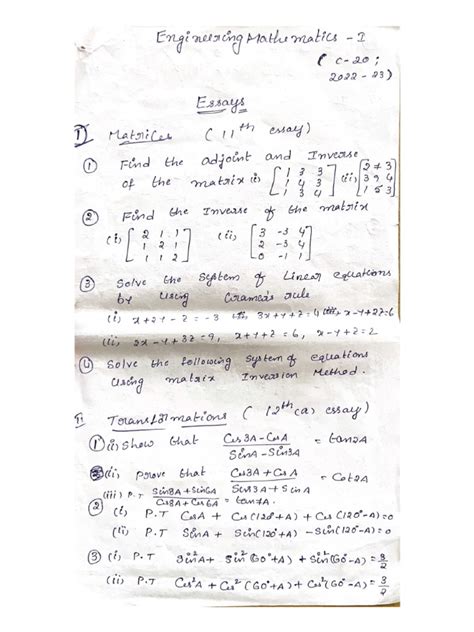 Engineering Mathematics - I
( C-20 ;
2022-23)
Essays
I) Matrices ( 11th essay)
① Find the adjoint and Inverse
of the matrix (i) [1 3 3; 1 4 3; 1 3 4] (ii) [2 7 3; 3 9 4; 1 5 3]
② Find the Inverse of the matrix
(i) [2 1 1; 1 2 1; 1 1 2] (ii) [3 -3 4; 2 -3 4; 0 -1 1]
③ Solve the System of Linear equations
by Using Cramer's rule
(i) x+2y-z=-3 3x+y+z=4 x-y+2z=6
(ii) 2x-y+3z=9, x+y+z=6, x-y+z=2
④ Solve the following System of equations
Using matrix Inversion Method.
II Transformations ( 12th (a) essay)
① (i) Show that (Cos3A-CosA)/(SinA-Sin3A) = tan2A
(ii) Prove that (Cos3A+CosA)/(Sin3A+SinA) = Cot2A
(iii) P.T =tan
② (i) P.T CosA + Cos(120°+A) + Cos(120°-A)=0
(ii) P.T SinA + Sin(120°+A) - Sin(120°-A)=0
③ (i) P.T Sin²A + Sin²(60°+A) + Sin²(60°-A)=3/2
(ii) P.T Cos²A + Cos²(60°+A) + Cos²(60°-A)=3/2